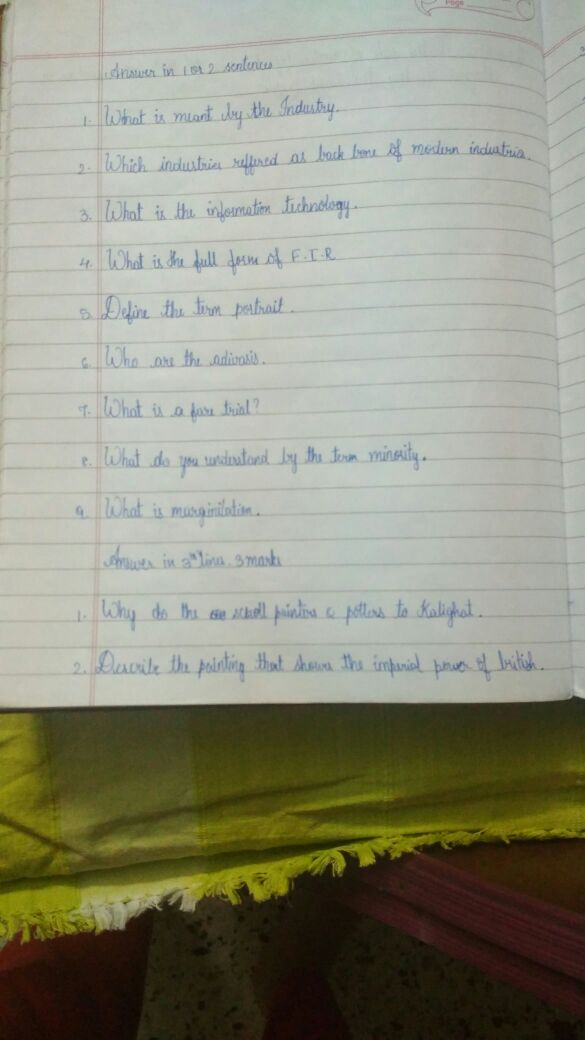 Page
Answer in 1 or 2 sentences
1. What is meant by the Industry.
2. Which industries reffered as back bone of modern industria.
3. What is the information technology.
4. What is the full form of F.I.R
5. Define the term portrait.
6. Who are the adivasis.
7. What is a fare trial?
8. What do you understand by the term minority.
9. What is marginilation.
Answer in 3 lines. 3 marks
1. Why do the scroll painters & potters to Kalighat.
2. Describe the painting that shows the imperial power of british.